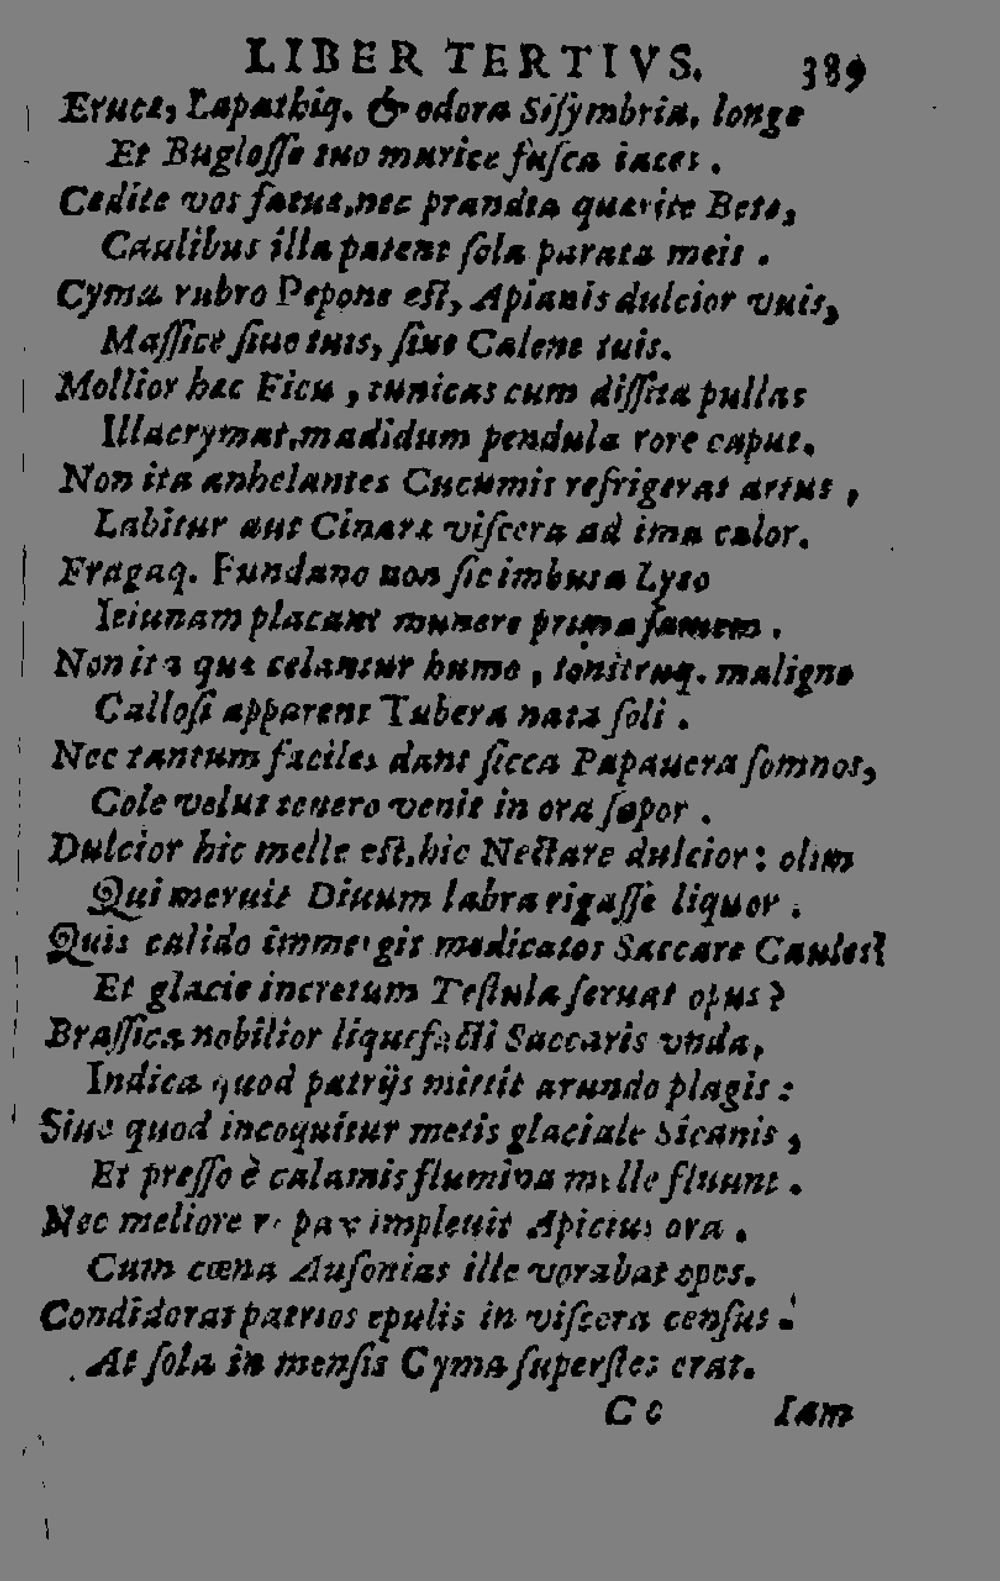 LIBER TERTIVS. 389
Eruca, Lapathiq. & odora Sisymbria, longe
Et Buglosse tuo murice fusca iaces.
Cedite vos fatua, nec prandia quarite Beta,
Caulibus illa patent sola parata meis.
Cyma rubro Pepone est, Apianis dulcior vuis,
Massice siue tuis, siue Calene tuis.
Mollior hac Ficu, tunicas cum dissita pullas
Illacrymat, madidum pendula rore caput.
Non ita anhelantes Cucumis refrigerat artus,
Labitur aut Cinara viscera ad ima calor.
Fragaq. Fundano non sic imbuta Lyeo
Ieiunam placant munere prima famem.
Non ita qua celantur humo, tonitruq. maligno
Callosi apparent Tubera nata soli.
Nec tantum faciles dant sicca Papauera somnos,
Cole velut tenero venit in ora sopor.
Dulcior hic melle est, hic Nectare dulcior: olim
Qui meruit Diuum labra rigasse liquor.
Quis calido immergit medicatos Saccare Caules?
Et glacie incretum Testula seruat opus?
Brassica nobilior liquefacti Saccaris vnda,
Indica quod patrijs mittit arundo plagis:
Siue quod incoquitur metis glaciale Sicanis,
Et presso è calamis flumina melle fluunt.
Nec meliore vorax impleuit Apicius ora.
Cum cœna Ausonias ille vorabat opes.
Condiderat patrios epulis in viscera census:
At sola in mensis Cyma superstes erat.
Cc Iam